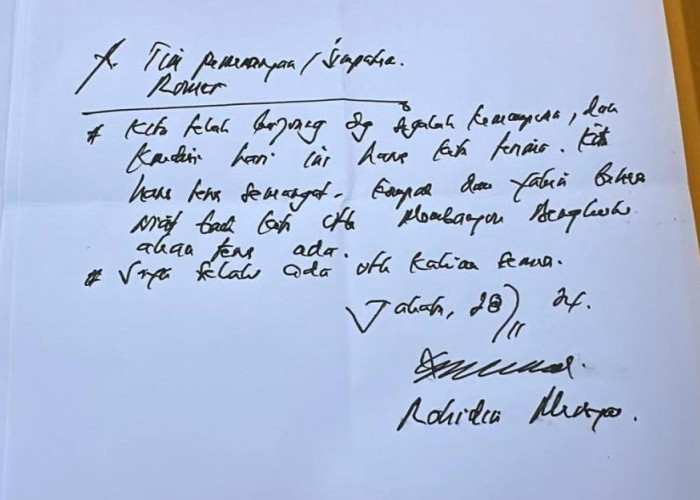 Tim pemenangan / Simpatisan
Romer
# Kita telah berjuang dg segalah kemampuan, dan
kondisi hari ini harus kita terima. Kita
harus terus semangat. kompak dan yakin bahwa
niat baik kita utk Membangun Bengkulu
akan terus ada.
# Saya selalu ada utk kalian semua.
Jakarta, 28/11 24.
Rohidin Mersyah.